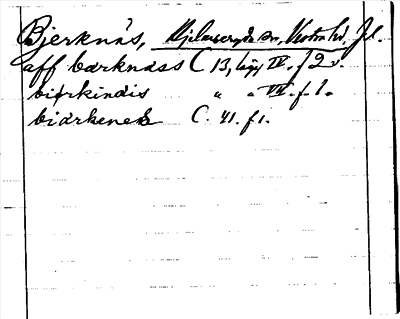 Bjerknäs, Hjelmseryds sn, Västra hd, J.l.
aff bærknæss C 13, lägg IV. f 2 v.
biærkindis " " VII. f. 1.
biærkenes C. 41. f 1.